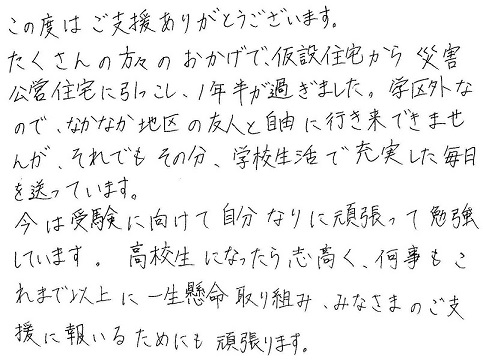 この度はご支援ありがとうございます。
たくさんの方々のおかげで仮設住宅から災害
公営住宅に引っこし、1年半が過ぎました。学区外な
ので、なかなか地区の友人と自由に行き来できませ
んが、それでもその分、学校生活で充実した毎日
を送っています。
今は受験に向けて自分なりに頑張って勉強
しています。高校生になったら志高く、何事もこ
れまで以上に一生懸命取り組み、みなさまのご支
援に報いるためにも頑張ります。